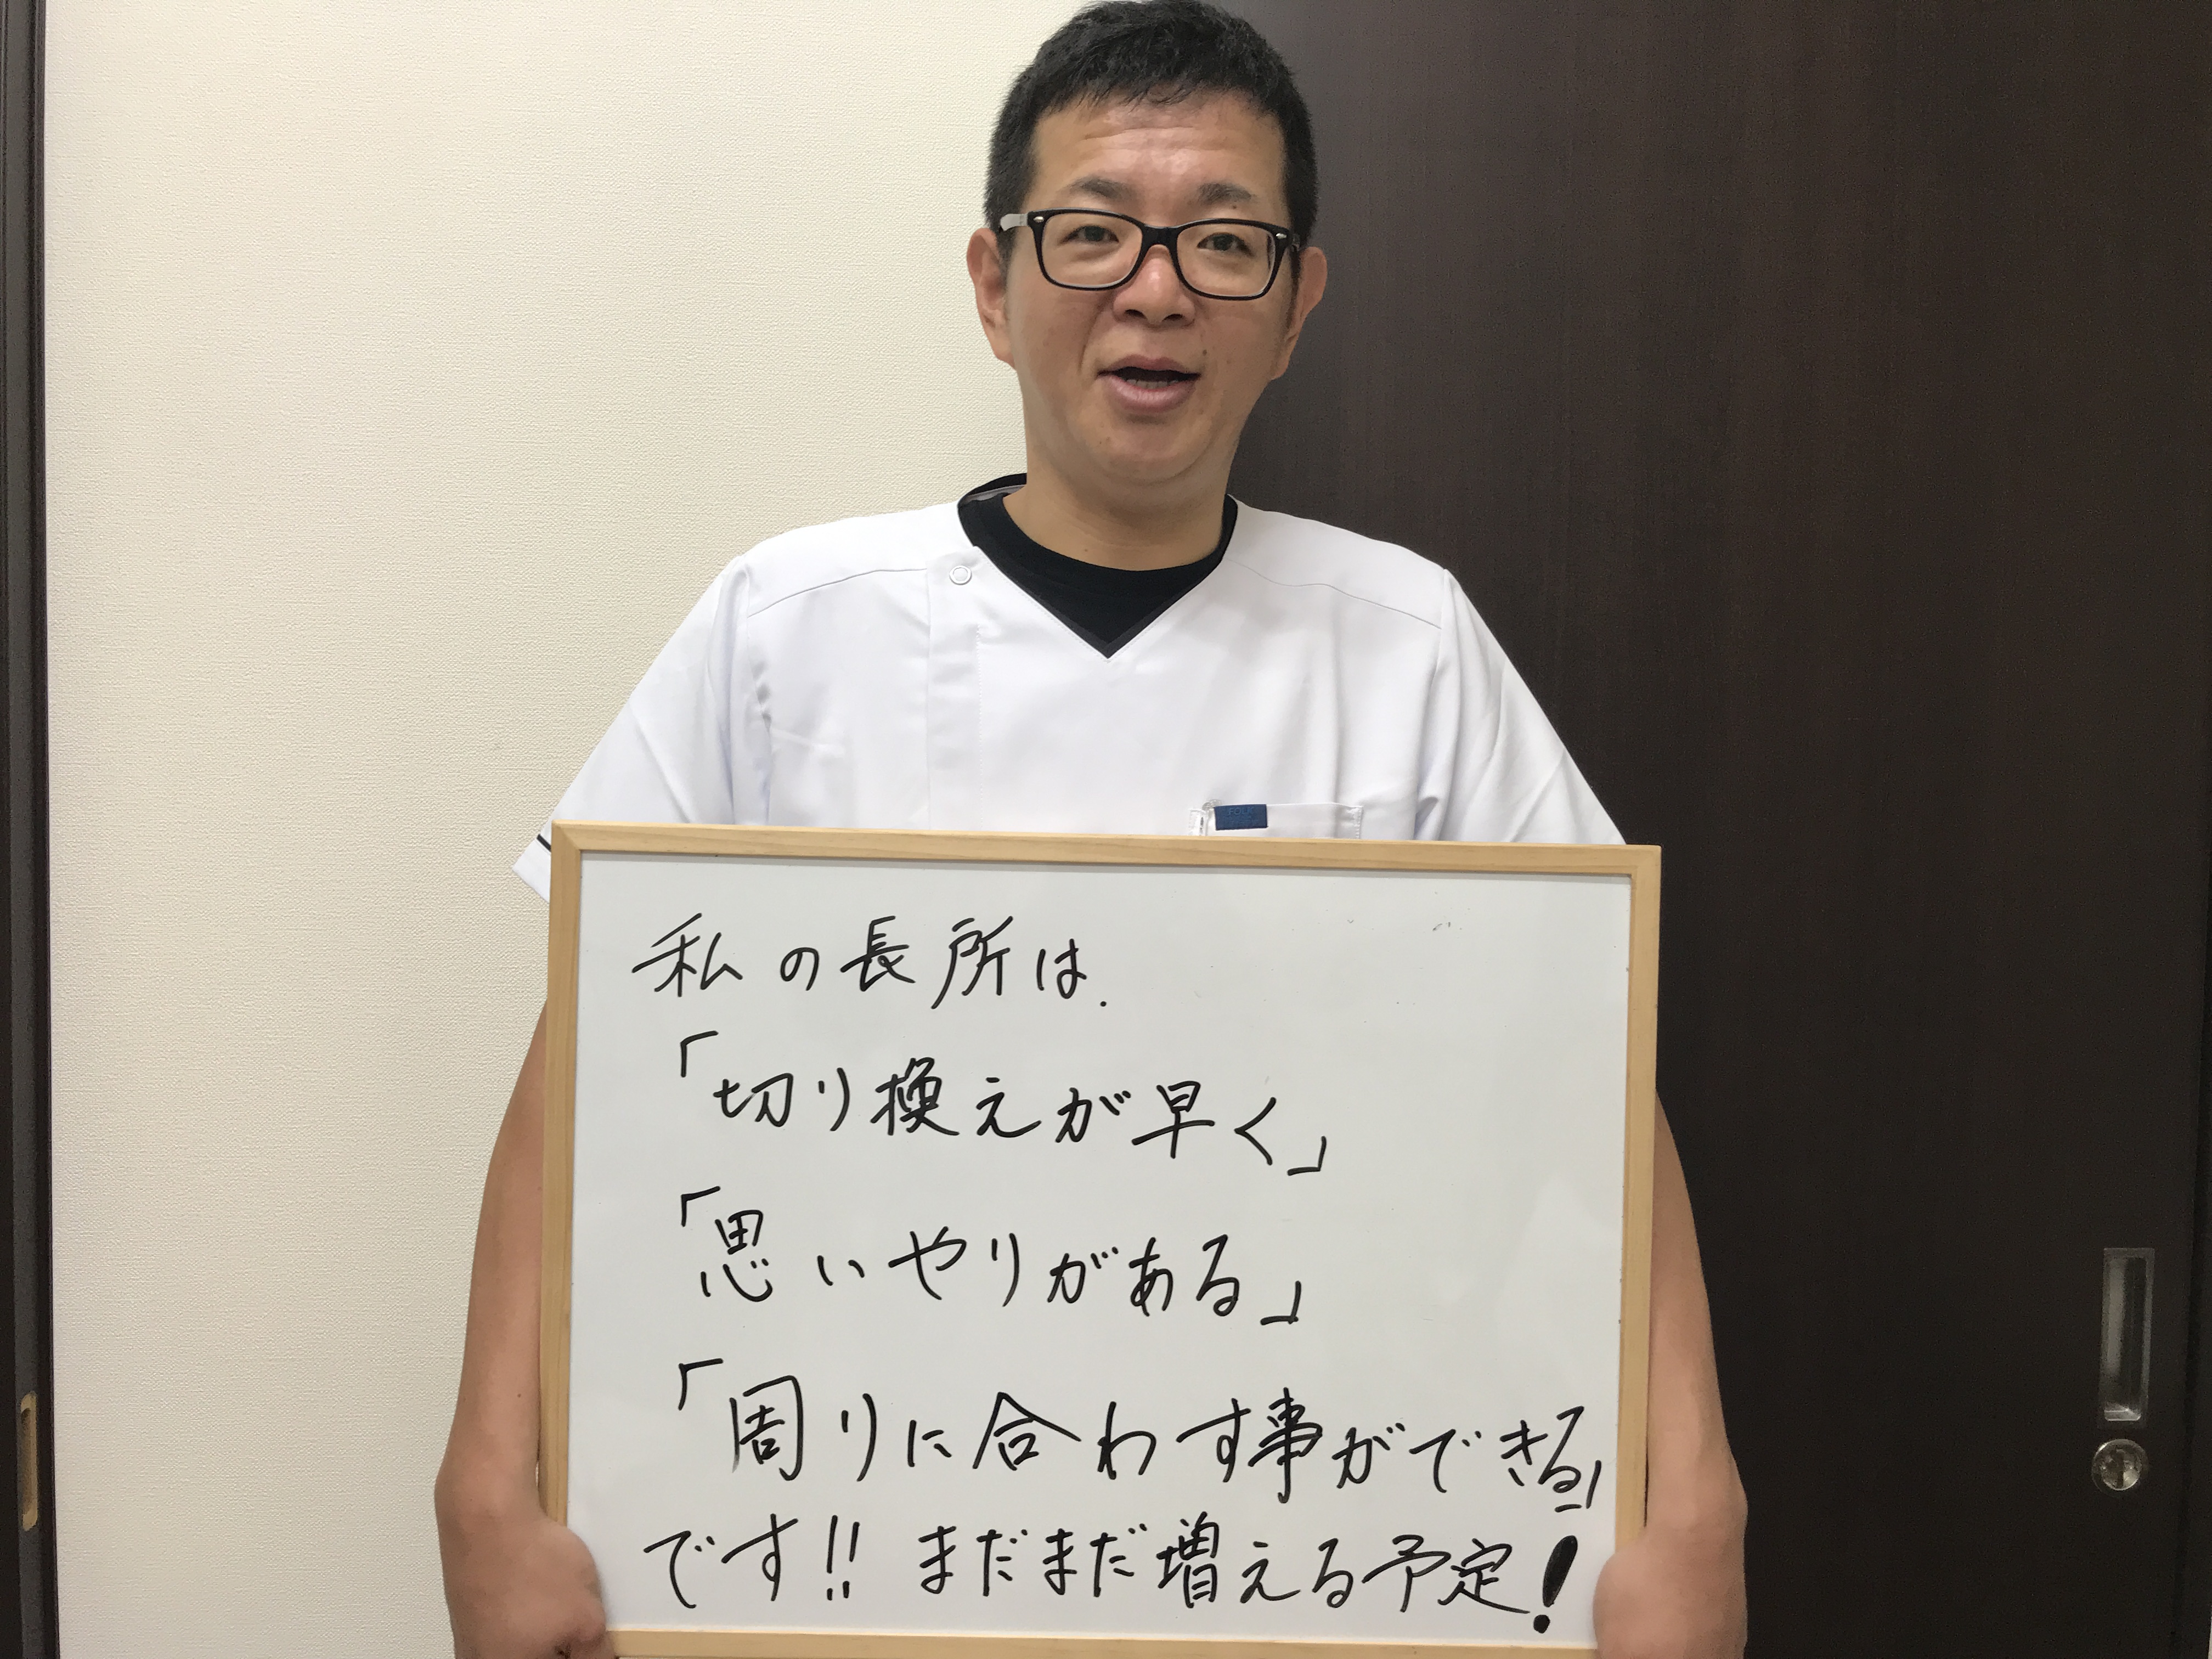 私の長所は.
「切り換えが早く」
「思いやりがある」
「周りに合わす事ができる」
です!! まだまだ増える予定!